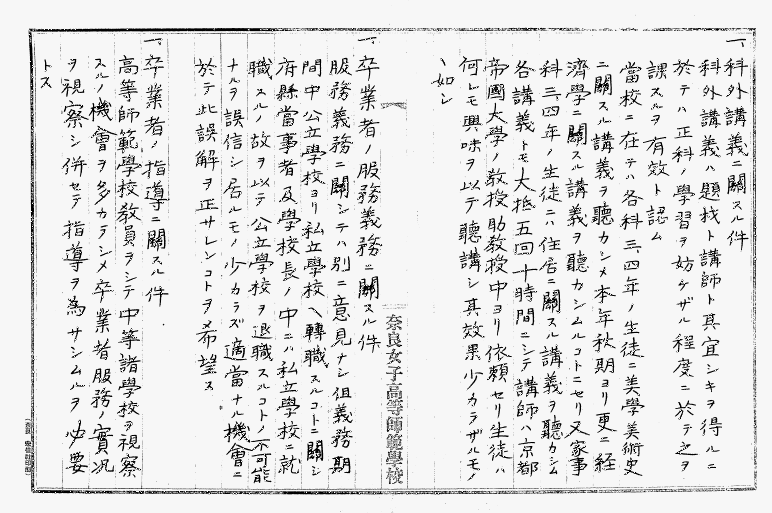 一、科外講義ニ關スル件
科外講義ハ題材ト講師ト其宜シキヲ得ルニ
於テハ正科ノ學習ヲ妨ケザル程度ニ於テ之ヲ
課スルヲ有效ト認ム
當校ニ在テハ各科三、四年ノ生徒ニ美學美術史
ニ關スル講義ヲ聽カシメ本年秋期ヨリ更ニ經
濟學ニ關スル講義ヲ聽カシムルコトニセリ又家事
科三四年ノ生徒ニハ住居ニ關スル講義ヲ聽カシム
各講義トモ大抵五回十時間ニシテ講師ハ京都
帝國大學ノ教授助教授中ヨリ依頼セリ生徒ハ
何レモ興味ヲ以テ聽講シ其效果少カラザルモノ
ヽ如シ
奈良女子高等師範學校
一、卒業者ノ服務義務ニ關スル件
服務義務ニ關シテハ別ニ意見ナシ但義務期
間中公立學校ヨリ私立學校ヘ轉職スルコトニ關シ
府縣當事者及學校長ノ中ニハ私立學校ニ就
職スルノ故ヲ以テ公立學校ヲ退職スルコトノ不可能
ナルヲ誤信シ居ルモノ少カラズ適當ナル機會ニ
於テ此誤解ヲ正サレンコトヲ希望ス
一、卒業者ノ指導ニ關スル件
高等師範學校教員ヲシテ中等諸學校ヲ視察
スルノ機會ヲ多カラシメ卒業者服務ノ實況
ヲ視察シ併セテ指導ヲ為サシムルヲ必要
トス